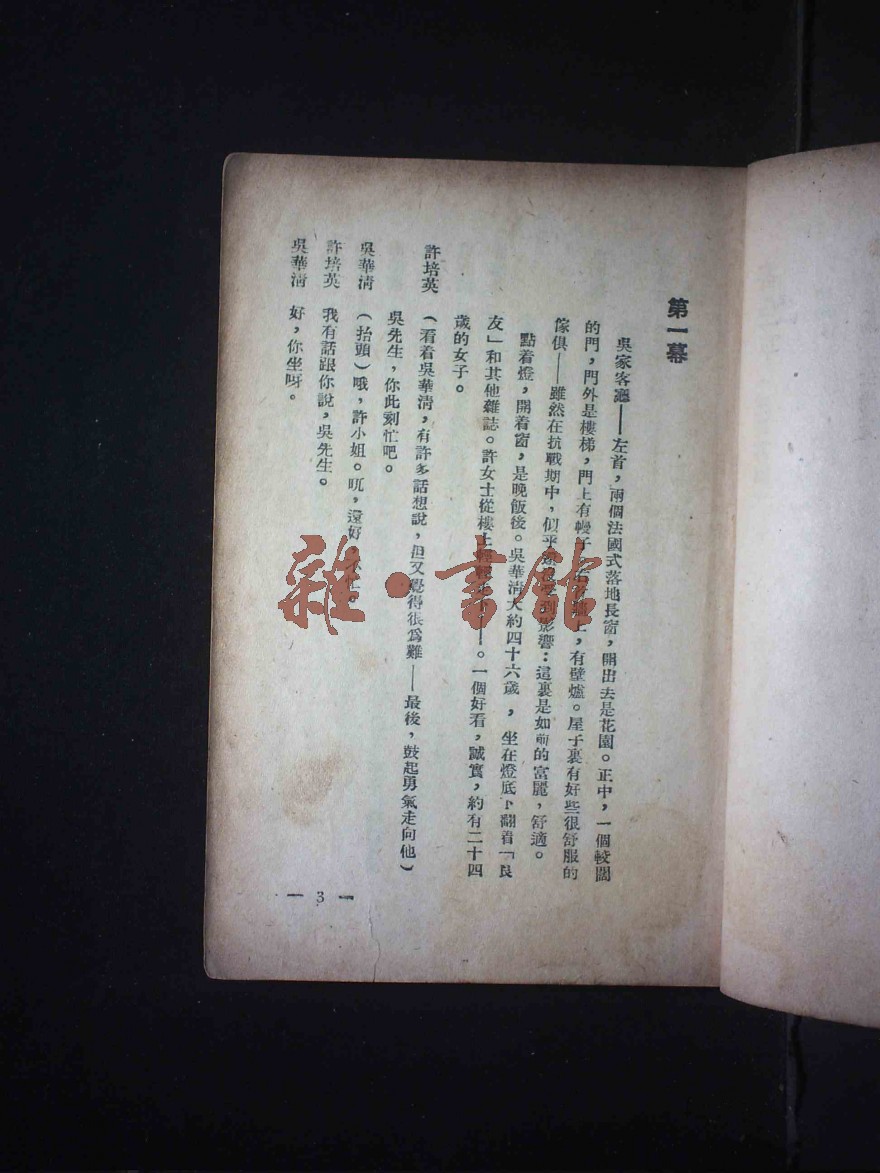 第一幕
吳家客廳——左首，兩個法國式落地長窗，開出去是花園。正中，一個較闊
的門，門外是樓梯，門上有幔子上，有壁爐。屋子裏有好些很舒服的
傢俱——雖然在抗戰期中，似乎影響：這裏是如前的富麗，舒適。
點着燈，開着窗，是晚飯後。吳華清大約四十六歲，坐在燈底下翻着「良
友」和其他雜誌。許女士從樓上——。一個好看，誠實，約有二十四
歲的女子。
許培英 （看着吳華清，有許多話想說，但又覺得很爲難——最後，鼓起勇氣走向他）
吳先生，你此刻忙吧。
吳華清 （抬頭）哦，許小姐。呒，還好，
許培英 我有話跟你說，吳先生。
吳華清 好，你坐呀。
— 3 —
雜·書館